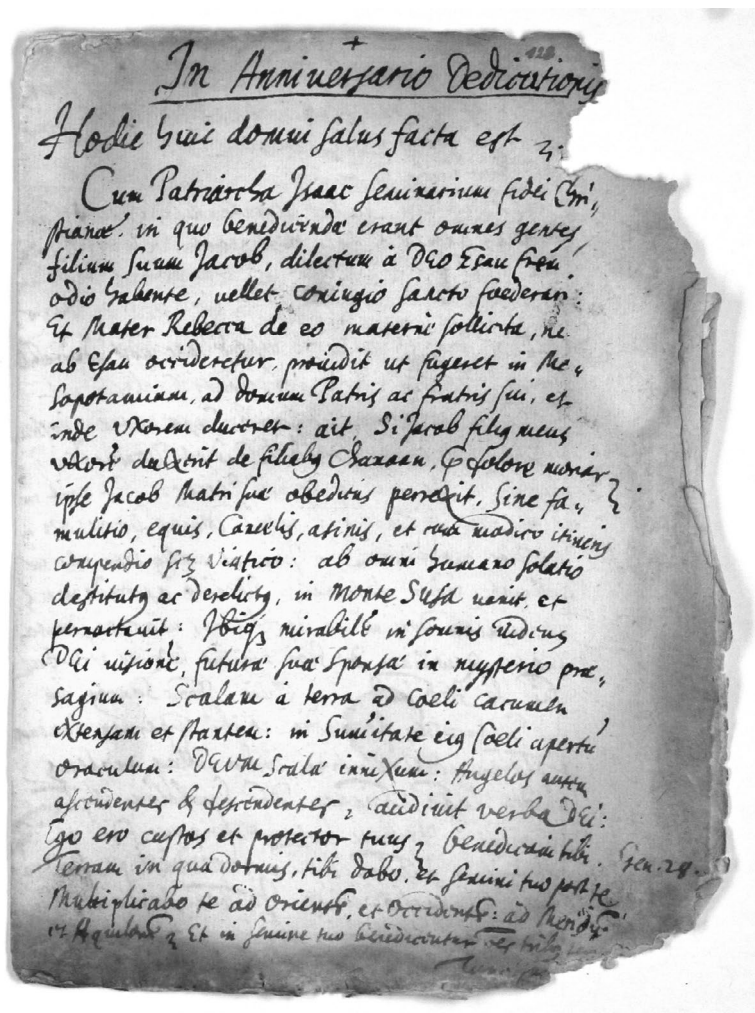 128
In Anniversario Dedicationis
Hodie huic domui salus facta est
Cum Patriarcha Isaac seminarium fidei Chri„
stianæ in quo benedicendæ erant omnes gentes,
filium suum Jacob, dilectum à DEO Esau
odio habente, vellet coniugio sancto foederari:
Et Mater Rebecca de eo maternè sollicita, ne
ab Esau occideretur, providit ut fugeret in Me„
sopotamiam, ad domum Patris ac fratris sui, et
inde vxorem duceret: ait, Si Jacob filiq meus
vxorē duxerit de filiabq Chanaan, dolore moriar
ipse Jacob Matri suæ obediens perrexit, sine fa„
mulitio, equis, Camelis, asinis, et cum modico itineris
compendio viatico: ab omni humano solatio
destitutq ac derelictq, in monte Susa venit, et
pernoctauit: Ibiq mirabilē in somnis
DEi uisionē, futuræ suæ sponsæ in mysterio præ„
sagium: Scalam à terra ad Coeli cacumen
extensam et stantem: in Sum̄itate eiq Coeli apertū
oraculum: DEVM Scalæ innixum: Angelos
ascendentes & descendentes, audiuit verba DEi:
Ego ero custos et protector tuus, benedicam tibi. Gen. 28.
Terram in qua dormis, tibi dabo, et semini tuo post te
Multiplicabo te ad orientē, et occidentē: ad
et Aquilonē Et in semine tuo benedicentur